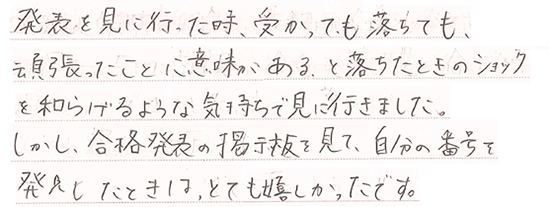 発表を見に行った時、受かっても落ちても、
頑張ったことに意味がある、と落ちたときのショック
を和らげるような気持ちで見に行きました。
しかし、合格発表の掲示板を見て、自分の番号を
発見したときは、とても嬉しかったです。